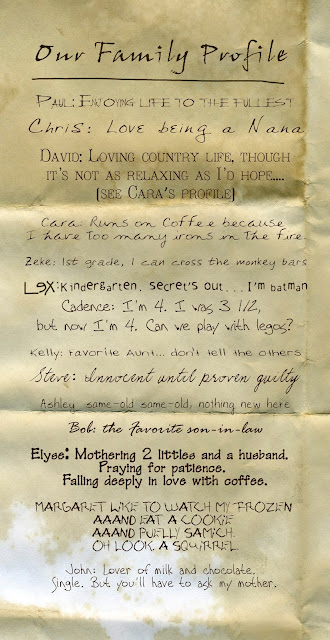 Our Family Profile
Paul: Enjoying life to the fullest
Chris: Love being a Nana
David: Loving country life, though
it's not as relaxing as I'd hope....
(see Cara's profile)
Cara: Runs on Coffee because
I have too many irons in the fire.
Zeke: 1st grade, I can cross the monkey bars
Lex: Kindergarten. Secret's out... I'm batman
Cadence: I'm 4. I was 3 1/2,
but now I'm 4. Can we play with legos?
Kelly: Favorite Aunt... don't tell the others
Steve: Innocent until proven guilty
Ashley: same-old same-old, nothing new here
Bob: the Favorite son-in-law
Elyse: Mothering 2 littles and a husband.
Praying for patience.
Falling deeply in love with coffee.
MARGARET LIKE TO WATCH MY FROZEN
AAAND EAT A COOKIE
AAAND PUELLY SAMICH.
OH LOOK A SQUIRREL
John: Lover of milk and chocolate.
Single. But you'll have to ask my mother.